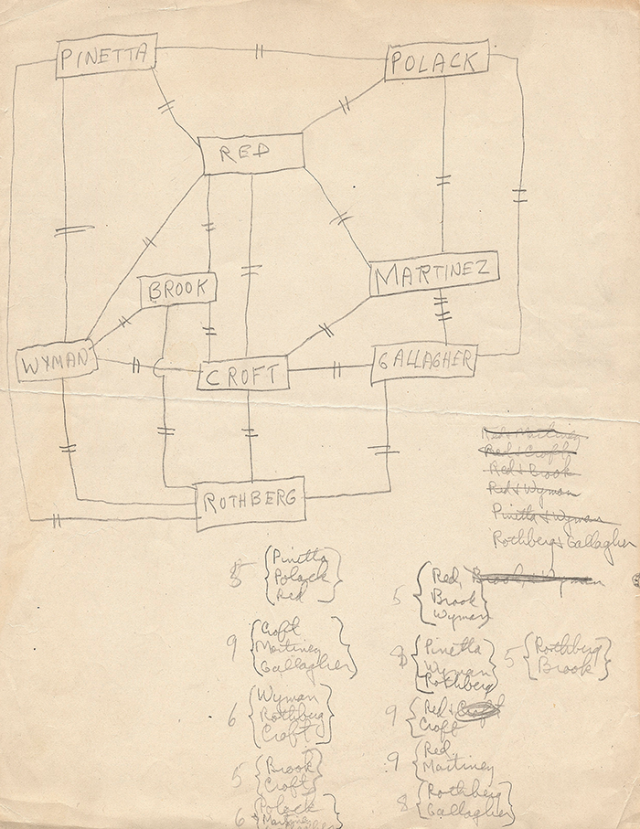 PINETTA
POLACK
RED
MARTINEZ
BROOK
WYMAN
CROFT
GALLAGHER
ROTHBERG
Red & Martinez
Red & Croft
Red & Brook
Red & Wyman
Pinetta & Wyman
Rothberg & Gallagher
5 { Pinetta
Polack
Red }
9 { Croft
Martinez
Gallagher }
6 { Wyman
Rothberg
Croft }
5 { Brook
Croft }
6 { Polack
Martinez
5 { Red, Brook, & Wyman
Brook
Wyman }
8 { Pinetta
Wyman
Rothberg }
5 { Rothberg
Brook }
9 { Red &
Croft
9 { Red,
Martinez
8 { Rothberg
Gallagher }